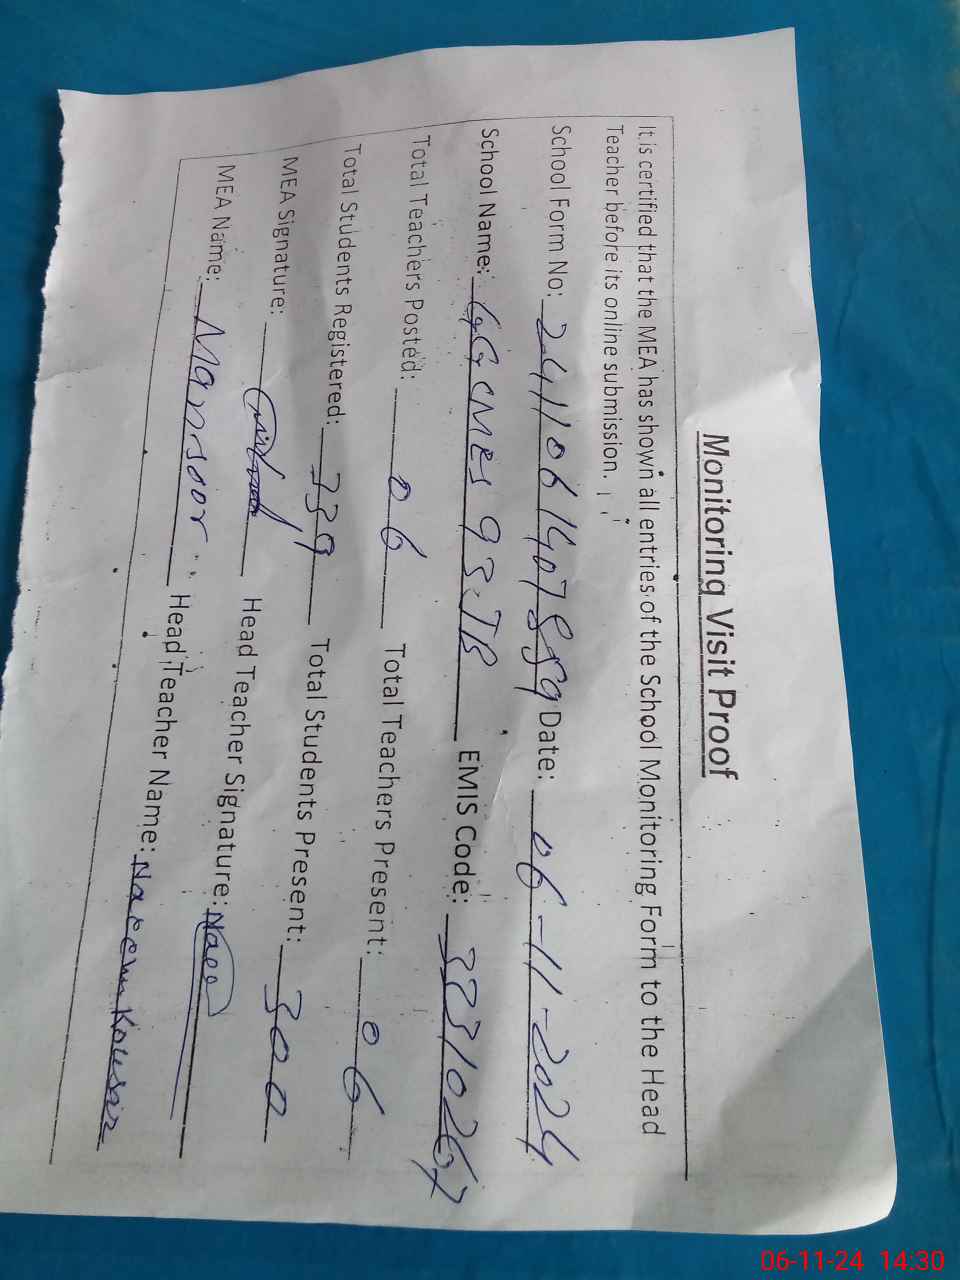 Monitoring Visit Proof
It is certified that the MEA has shown all entries of the School Monitoring Form to the Head
Teacher before its online submission.
School Form No: 2411061407889 Date: 06-11-2024
School Name: GGCMES 93.TB EMIS Code: 33310267
Total Teachers Posted: 06 Total Teachers Present: 06
Total Students Registered: 339 Total Students Present: 300
MEA Signature: Head Teacher Signature:
MEA Name: Mansoor Head Teacher Name: Naeem Kousar
06-11-24 14:30